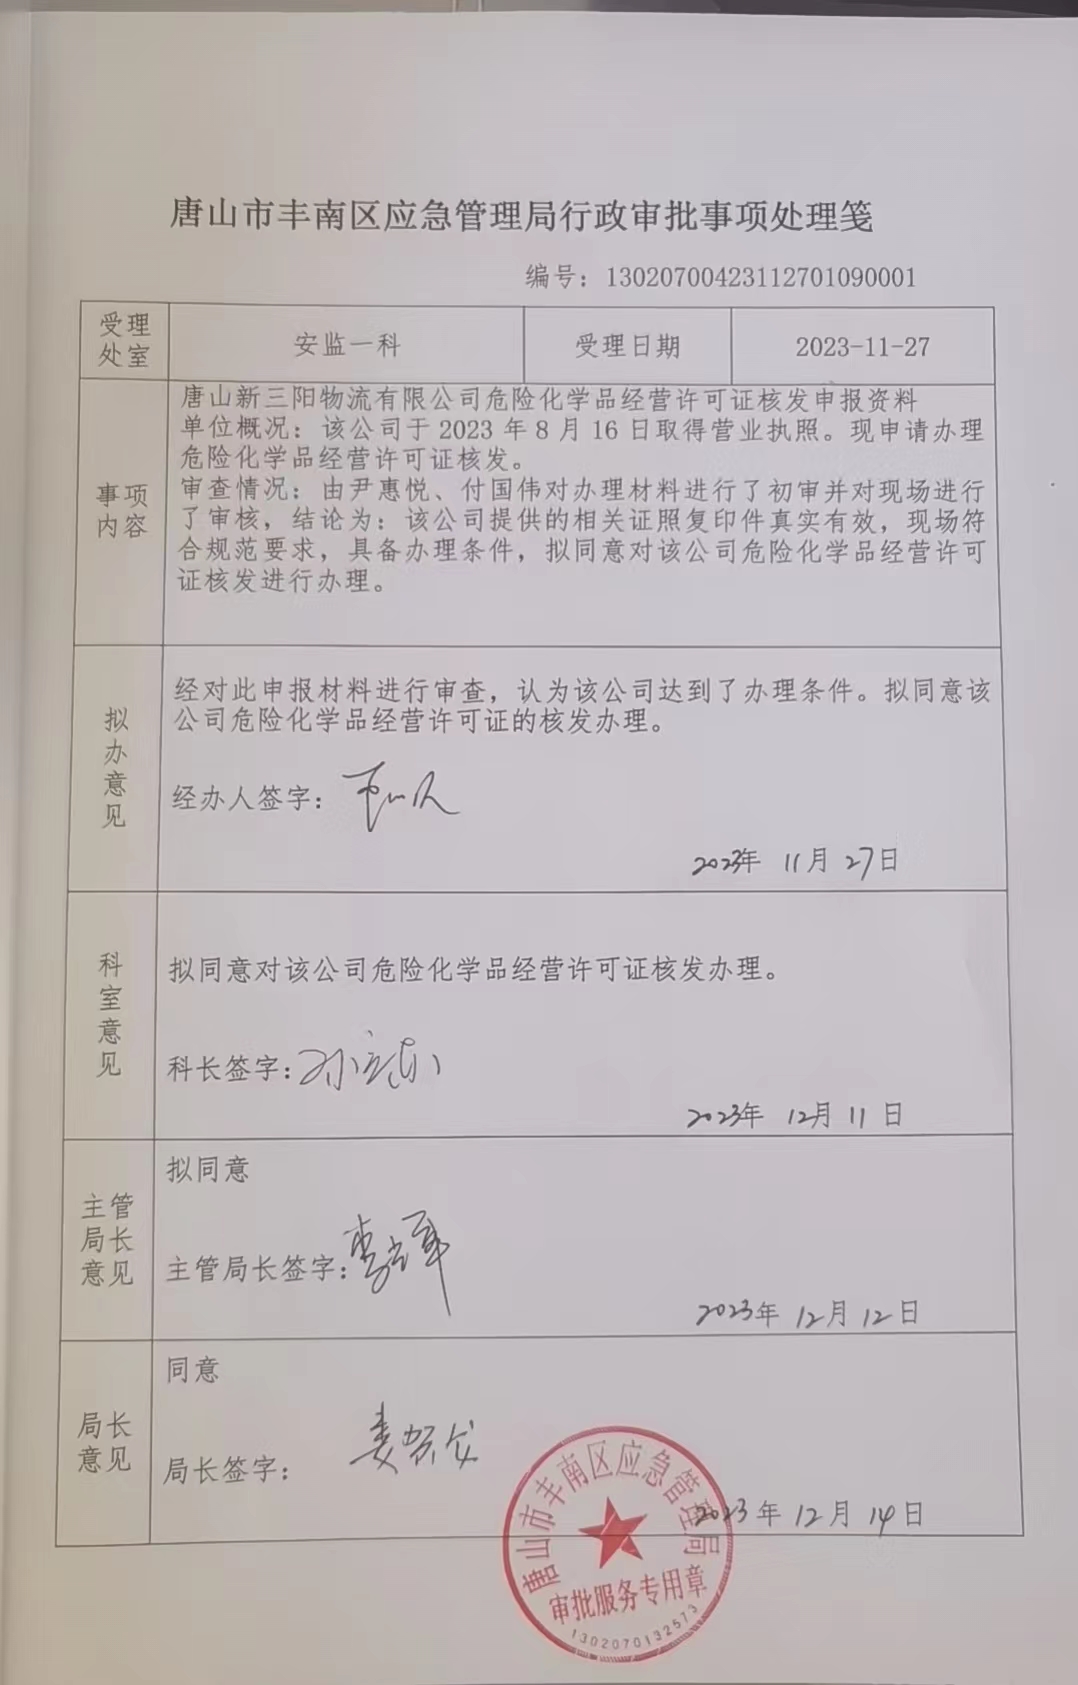 唐山市丰南区应急管理局行政审批事项处理笺
编号：13020700423112701090001
受理
处室
安监一科
受理日期
2023-11-27
事项
内容
唐山新三阳物流有限公司危险化学品经营许可证核发申报资料
单位概况：该公司于 2023 年 8 月 16 日取得营业执照。现申请办理
危险化学品经营许可证核发。
审查情况：由尹惠悦、付国伟对办理材料进行了初审并对现场进行
了审核，结论为：该公司提供的相关证照复印件真实有效，现场符
合规范要求，具备办理条件，拟同意对该公司危险化学品经营许可
证核发进行办理。
拟
办
意
见
经对此申报材料进行审查，认为该公司达到了办理条件。拟同意该
公司危险化学品经营许可证的核发办理。
经办人签字：
2023年 11月 27日
科
室
意
见
拟同意对该公司危险化学品经营许可证核发办理。
科长签字：
2023年 12月 11 日
主管
局长
意见
拟同意
主管局长签字：
2023年 12月 12日
局长
意见
同意
局长签字：
2023年 12月 14日
唐山市丰南区应急管理局
审批服务专用章
1302070132573